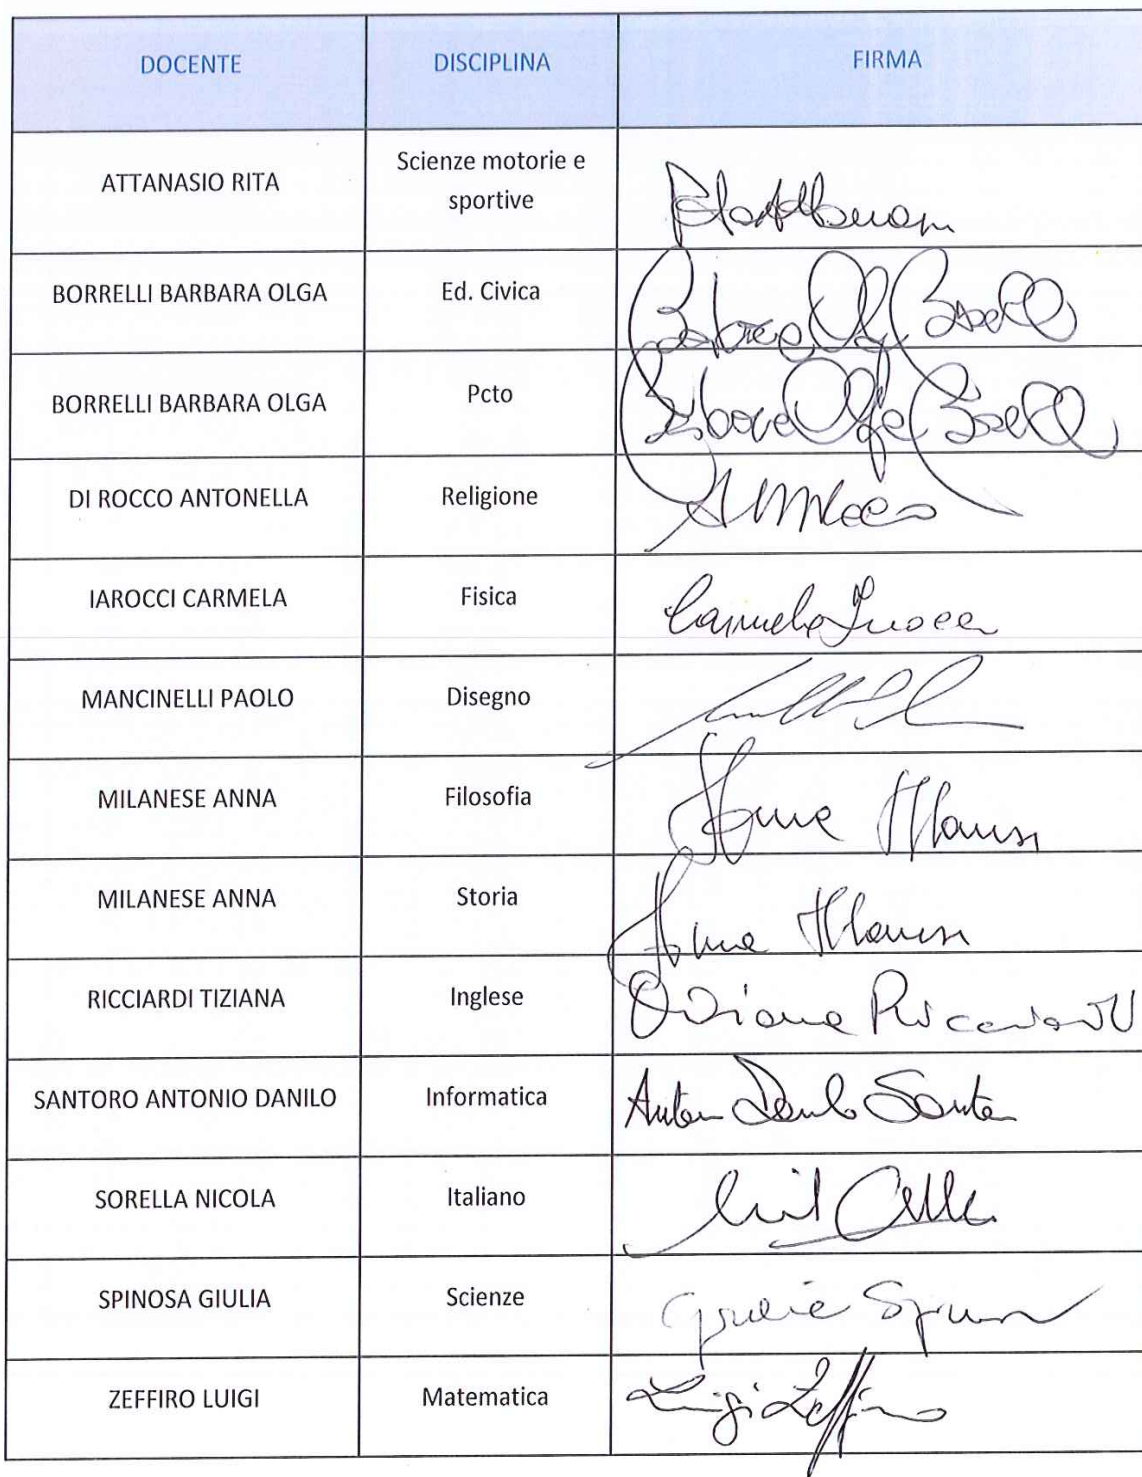 DOCENTE DISCIPLINA FIRMA
ATTANASIO RITA Scienze motorie e
sportive
BORRELLI BARBARA OLGA Ed. Civica Barbara Olga Borrelli
BORRELLI BARBARA OLGA Pcto Barbara Olga Borrelli
DI ROCCO ANTONELLA Religione
IAROCCI CARMELA Fisica Carmela Iarocci
MANCINELLI PAOLO Disegno
MILANESE ANNA Filosofia Anna
MILANESE ANNA Storia Anna
RICCIARDI TIZIANA Inglese Tiziana Ricciardi
SANTORO ANTONIO DANILO Informatica Antonio Danilo Santoro
SORELLA NICOLA Italiano
SPINOSA GIULIA Scienze Giulia Spinosa
ZEFFIRO LUIGI Matematica Luigi Zeffiro